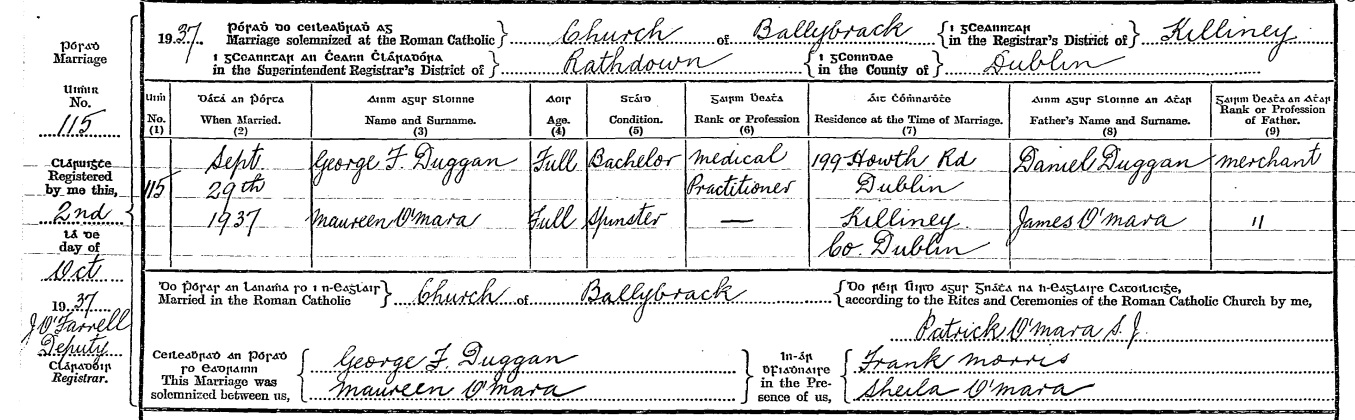 1937. Pósadh do ceileabhradh ag
Marriage solemnized at the Roman Catholic Church of Ballybrack
i gCeanntar
in the Registrar's District of Killiney
i gCeanntar an Cheann Chláradóra
in the Superintendent Registrar's District of Rathdown
i gConndae
in the County of Dublin
Pósadh
Marriage
Uimhir
No.
115
Cláruighthe
Registered
by me this,
2nd
lá de
day of
Oct
1937
J O'Farrell
Deputy
Cláradóir
Registrar.
Uimh Dáta an Phósta Ainm agus Sloinne Aois Stáid Gairm Beatha Áit Comhnaidhthe Ainm agus Sloinne an Athar Gairm Beatha an Athar
No. When Married. Name and Surname. Age. Condition. Rank or Profession Residence at the Time of Marriage. Father's Name and Surname. Rank or Profession of Father.
(1) (2) (3) (4) (5) (6) (7) (8) (9)
Sept George F. Duggan Full Bachelor medical 199 Howth Rd Daniel Duggan merchant
115 29th Practitioner Dublin
1937 Maureen O'Mara Full Spinster — Killiney James O'Mara "
Co. Dublin
Do pósadh an lánamha so i n-eaglais
Married in the Roman Catholic Church of Ballybrack
Do réir Úird agus Gnáta na h-Eaglaise Catoilicighe,
according to the Rites and Ceremonies of the Roman Catholic Church by me,
Patrick O'Mara S.J.
Ceileabhradh an Pósadh
so eadrainn
This Marriage was
solemnized between us,
George F. Duggan
Maureen O'Mara
In-ár
bhfiadhnaire
in the Pre-
sence of us,
Frank Morris
Sheila O'Mara